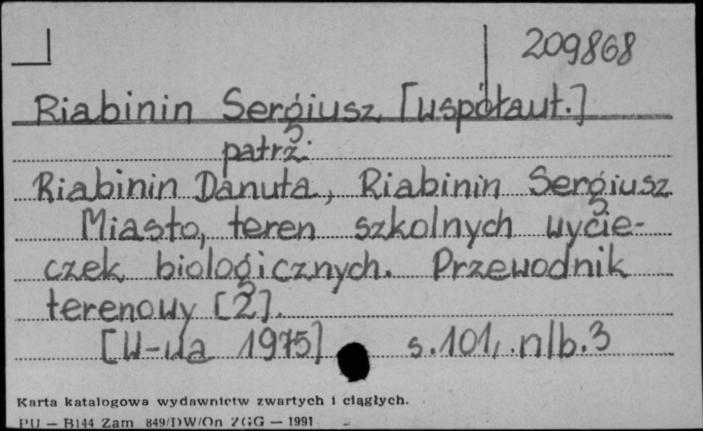 209868
Riabinin Sergiusz [współaut.]
patrz:
Riabinin Danuta, Riabinin Sergiusz
Miasto, teren szkolnych wycie-
czek biologicznych. Przewodnik
terenowy [2].
[W-wa 1975] s.101, nlb.3
Karta katalogowa wydawnictw zwartych i ciągłych.
PU — B144 Zam 849/DW/On ZGG — 1991